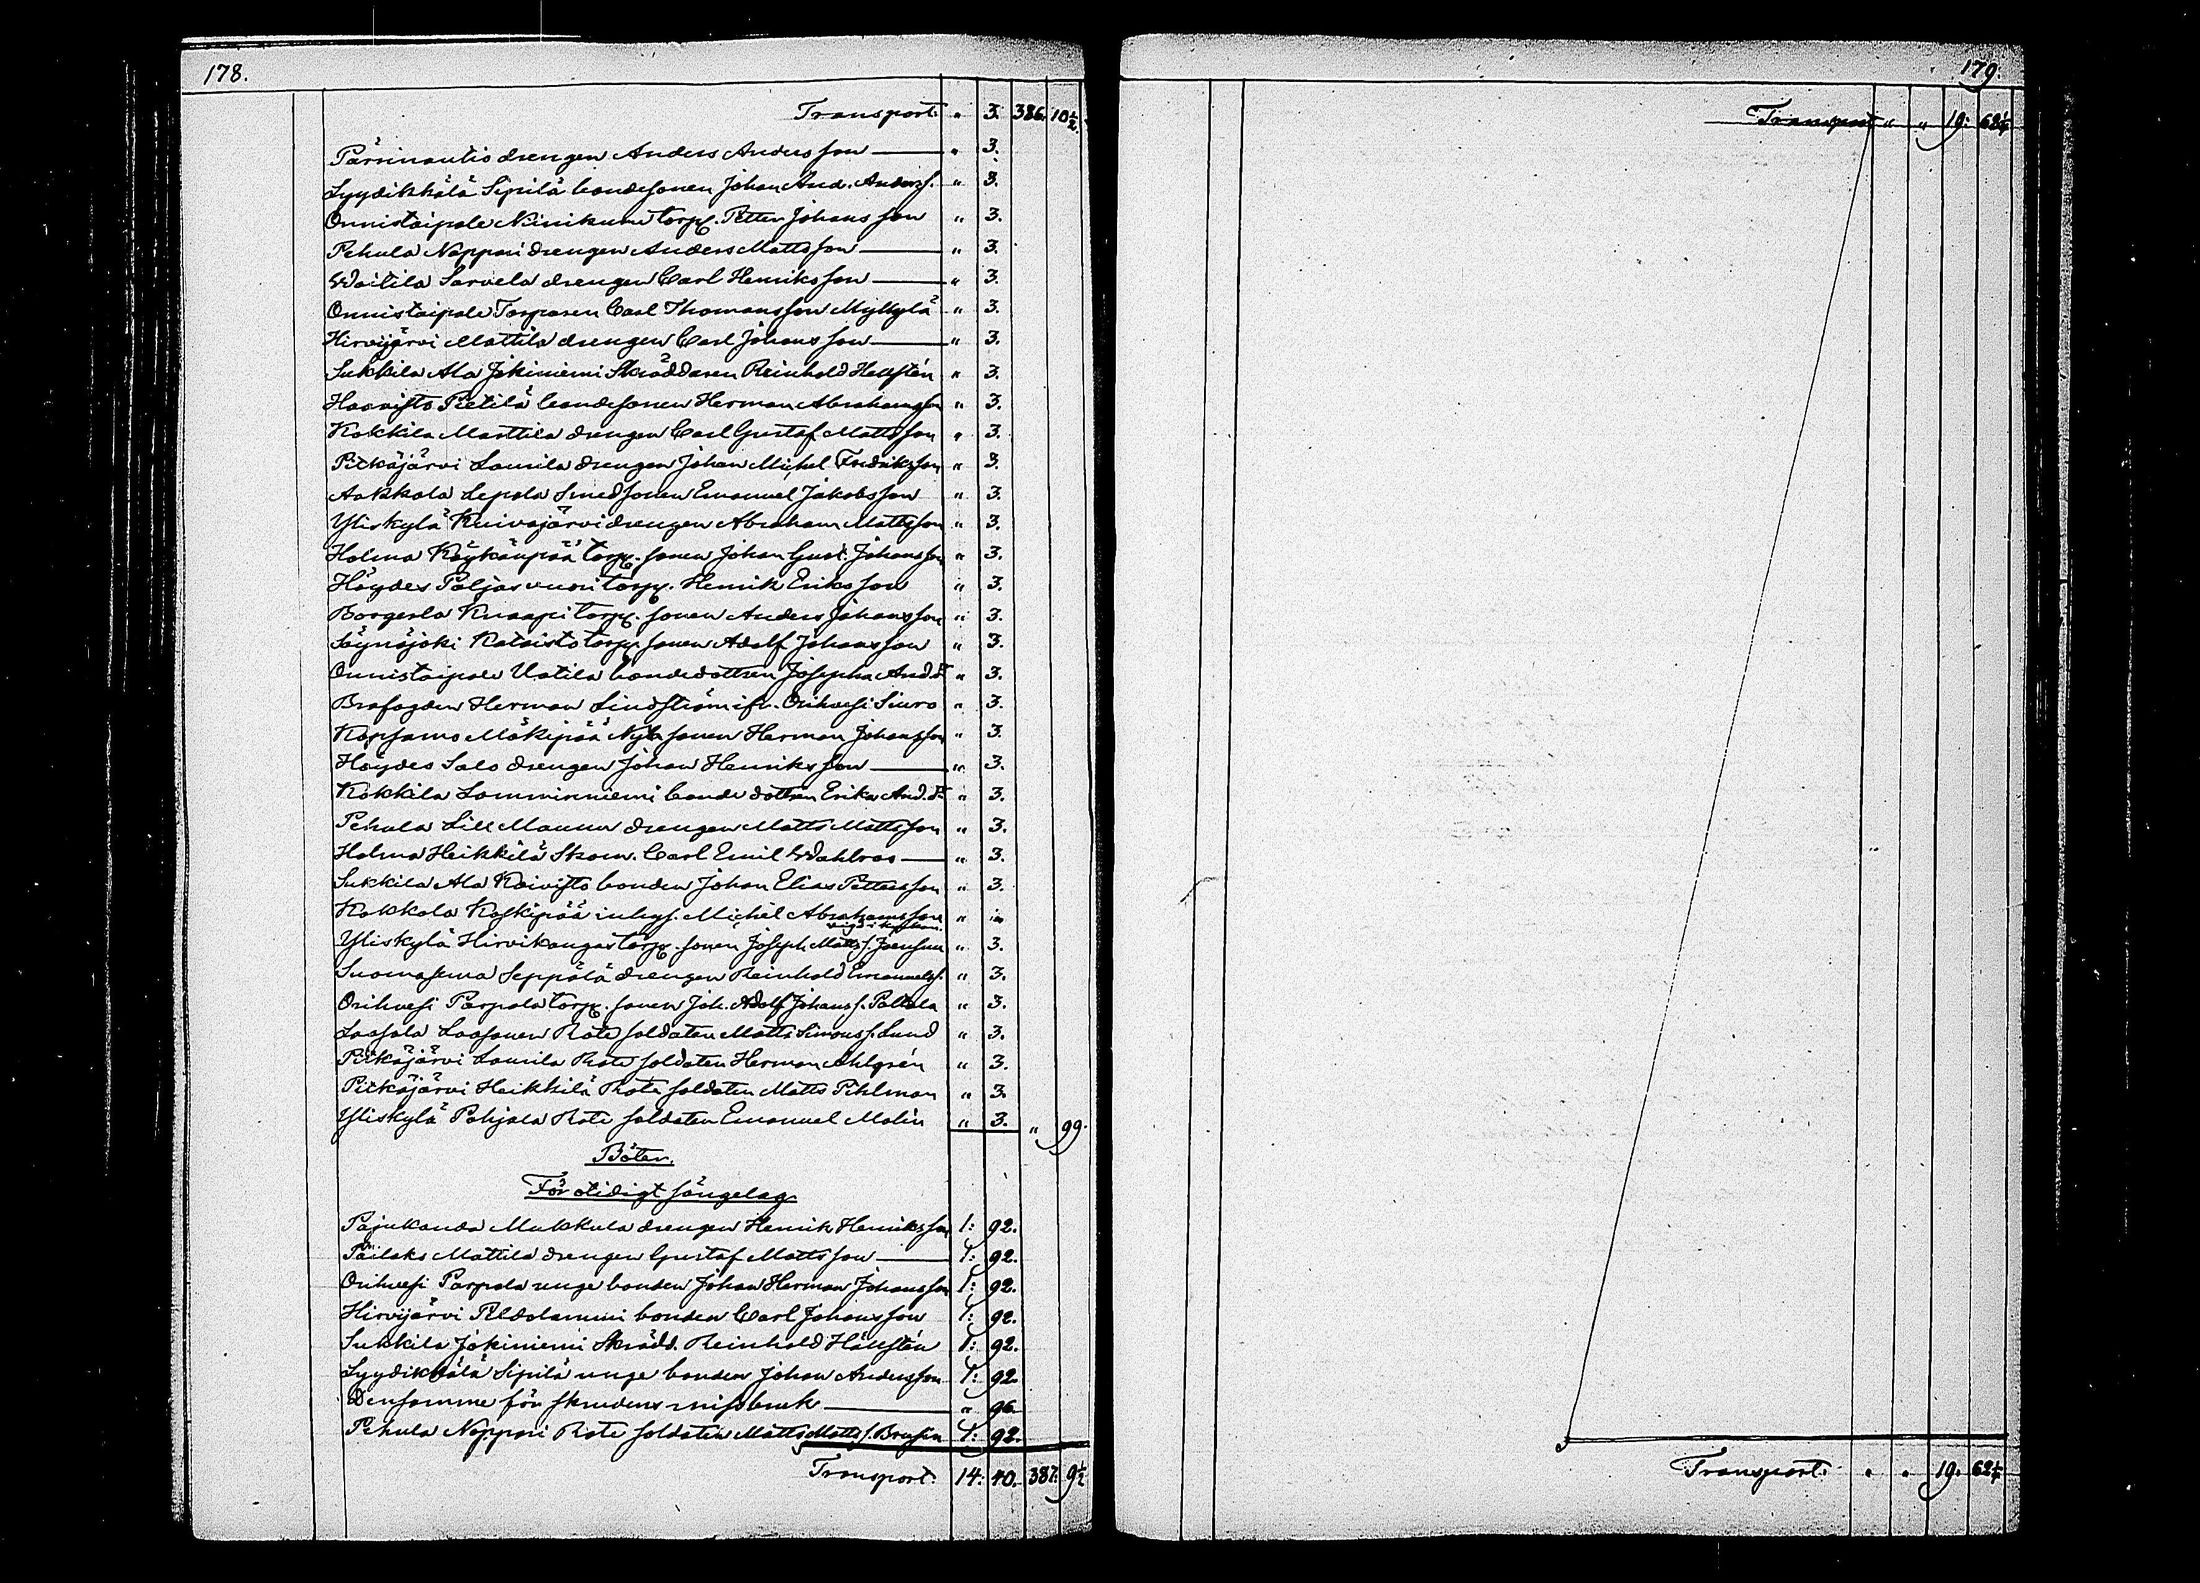 178.
Transport. " 3. 386. 10½.
Pärrinautio drengen Anders Andersson — " 3.
Lyydikkälä Sipilä bondesonen Johan And. Anderss. " 3.
Onnistaipale Niinikumu torp. Petter Johansson " 3.
Pehula Noppari drengen Anders Mattsson — " 3.
Waitila Sarvela drengen Carl Henriksson — " 3.
Onnistaipale Torparen Carl Thomansson Myllylä " 3.
Hirvijärvi Mattila drengen Carl Johansson — " 3.
Sukkila Ala Jokiniemi Skräddaren Reinhold Hellstén " 3.
Haavisto Pietilä bondesonen Herman Abrahamsson " 3.
Kokkila Marttila drengen Carl Gustaf Mattsson " 3.
Pitkäjärvi Lamila drengen Johan Michel Fredriksson " 3.
Aakkala Lepola Smedsonen Emanuel Jakobsson " 3.
Yliskylä Kuivajärvi drengen Abraham Mattsson " 3.
Holma Köykänpää torp. sonen Johan Gust. Johansson " 3.
Höydes Paljasvuori torp. Henrik Eriksson " 3.
Borgerla Knaapi torp. sonen Anders Johansson " 3.
Säynäjoki Kataisto torp. sonen Adolf Johansson " 3.
Onnistaipale Uotila bondedottren Josepha And.dr " 3.
Brofogden Herman Lindström ifr. Orihvesi Siuro " 3.
Kopsamo Mäkipää Nyb. sonen Herman Johansson " 3.
Höydes Salo drengen Johan Henriksson — " 3.
Kokkila Lamminniemi bondedottren Erika And.dr " 3.
Pehula Lill Maunu drengen Matts Mattsson " 3.
Holma Heikkilä Skom. Carl Emil Wahlroo — " 3.
Sukkila Ala Koivisto bonden Johan Elias Pettersson " 3.
Kokkola Koskipää inhys. Michel Abrahamsson " "
Yliskylä Hirvikangas torp. sonen Joseph Matts s. Joensuu " 3.
Suomasema Seppälä drengen Reinhold Emanuelss. " 3.
Orihvesi Parpala torp. sonen Joh. Adolf Johans s. Pattala " 3.
Laasola Laasonen Rote soldaten Matts Simons s. Lund " 3.
Pitkäjärvi Lamila Rote soldaten Herman Ahlgrén " 3.
Pitkäjärvi Heikkilä Rote soldaten Matts Pihlman " 3.
Yliskylä Pohjala Rote soldaten Emanuel Malin " 3. " 99.
Böter.
För otidigt sängelag.
Pajukanda Mukkula drengen Henrik Henriksson 1: 92.
Päilaks Mattila drengen Gustaf Mattsson — 1: 92.
Orihvesi Parpala unge bonden Johan Herman Johansson 1: 92.
Hirvijärvi Peldolammi bonden Carl Johansson 1: 92.
Sukkila Jokiniemi Skrädd. Reinhold Hällstén 1: 92.
Lyydikkälä Sipilä unge bonden Johan Andersson 1: 92.
Densamme för skrudens missbruk — " 96.
Pehula Noppari Rote soldaten Matts Matts s. Brusin 1: 92.
Transport. 14: 40. 387. 9½
179.
Transport " " 19: 62¼
Transport. " " 19. 62¼